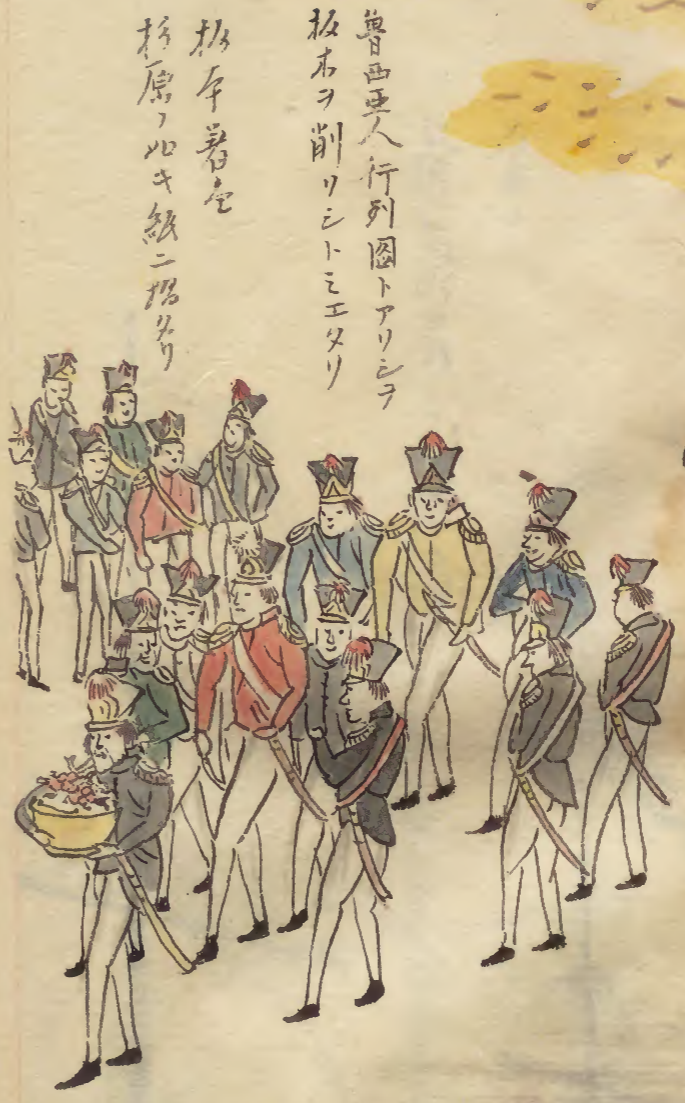 魯西亜人行列圖トアリシヲ
板木ヲ削リシトミエタリ
板本着色
杉原ノ如キ紙ニ搨タリ